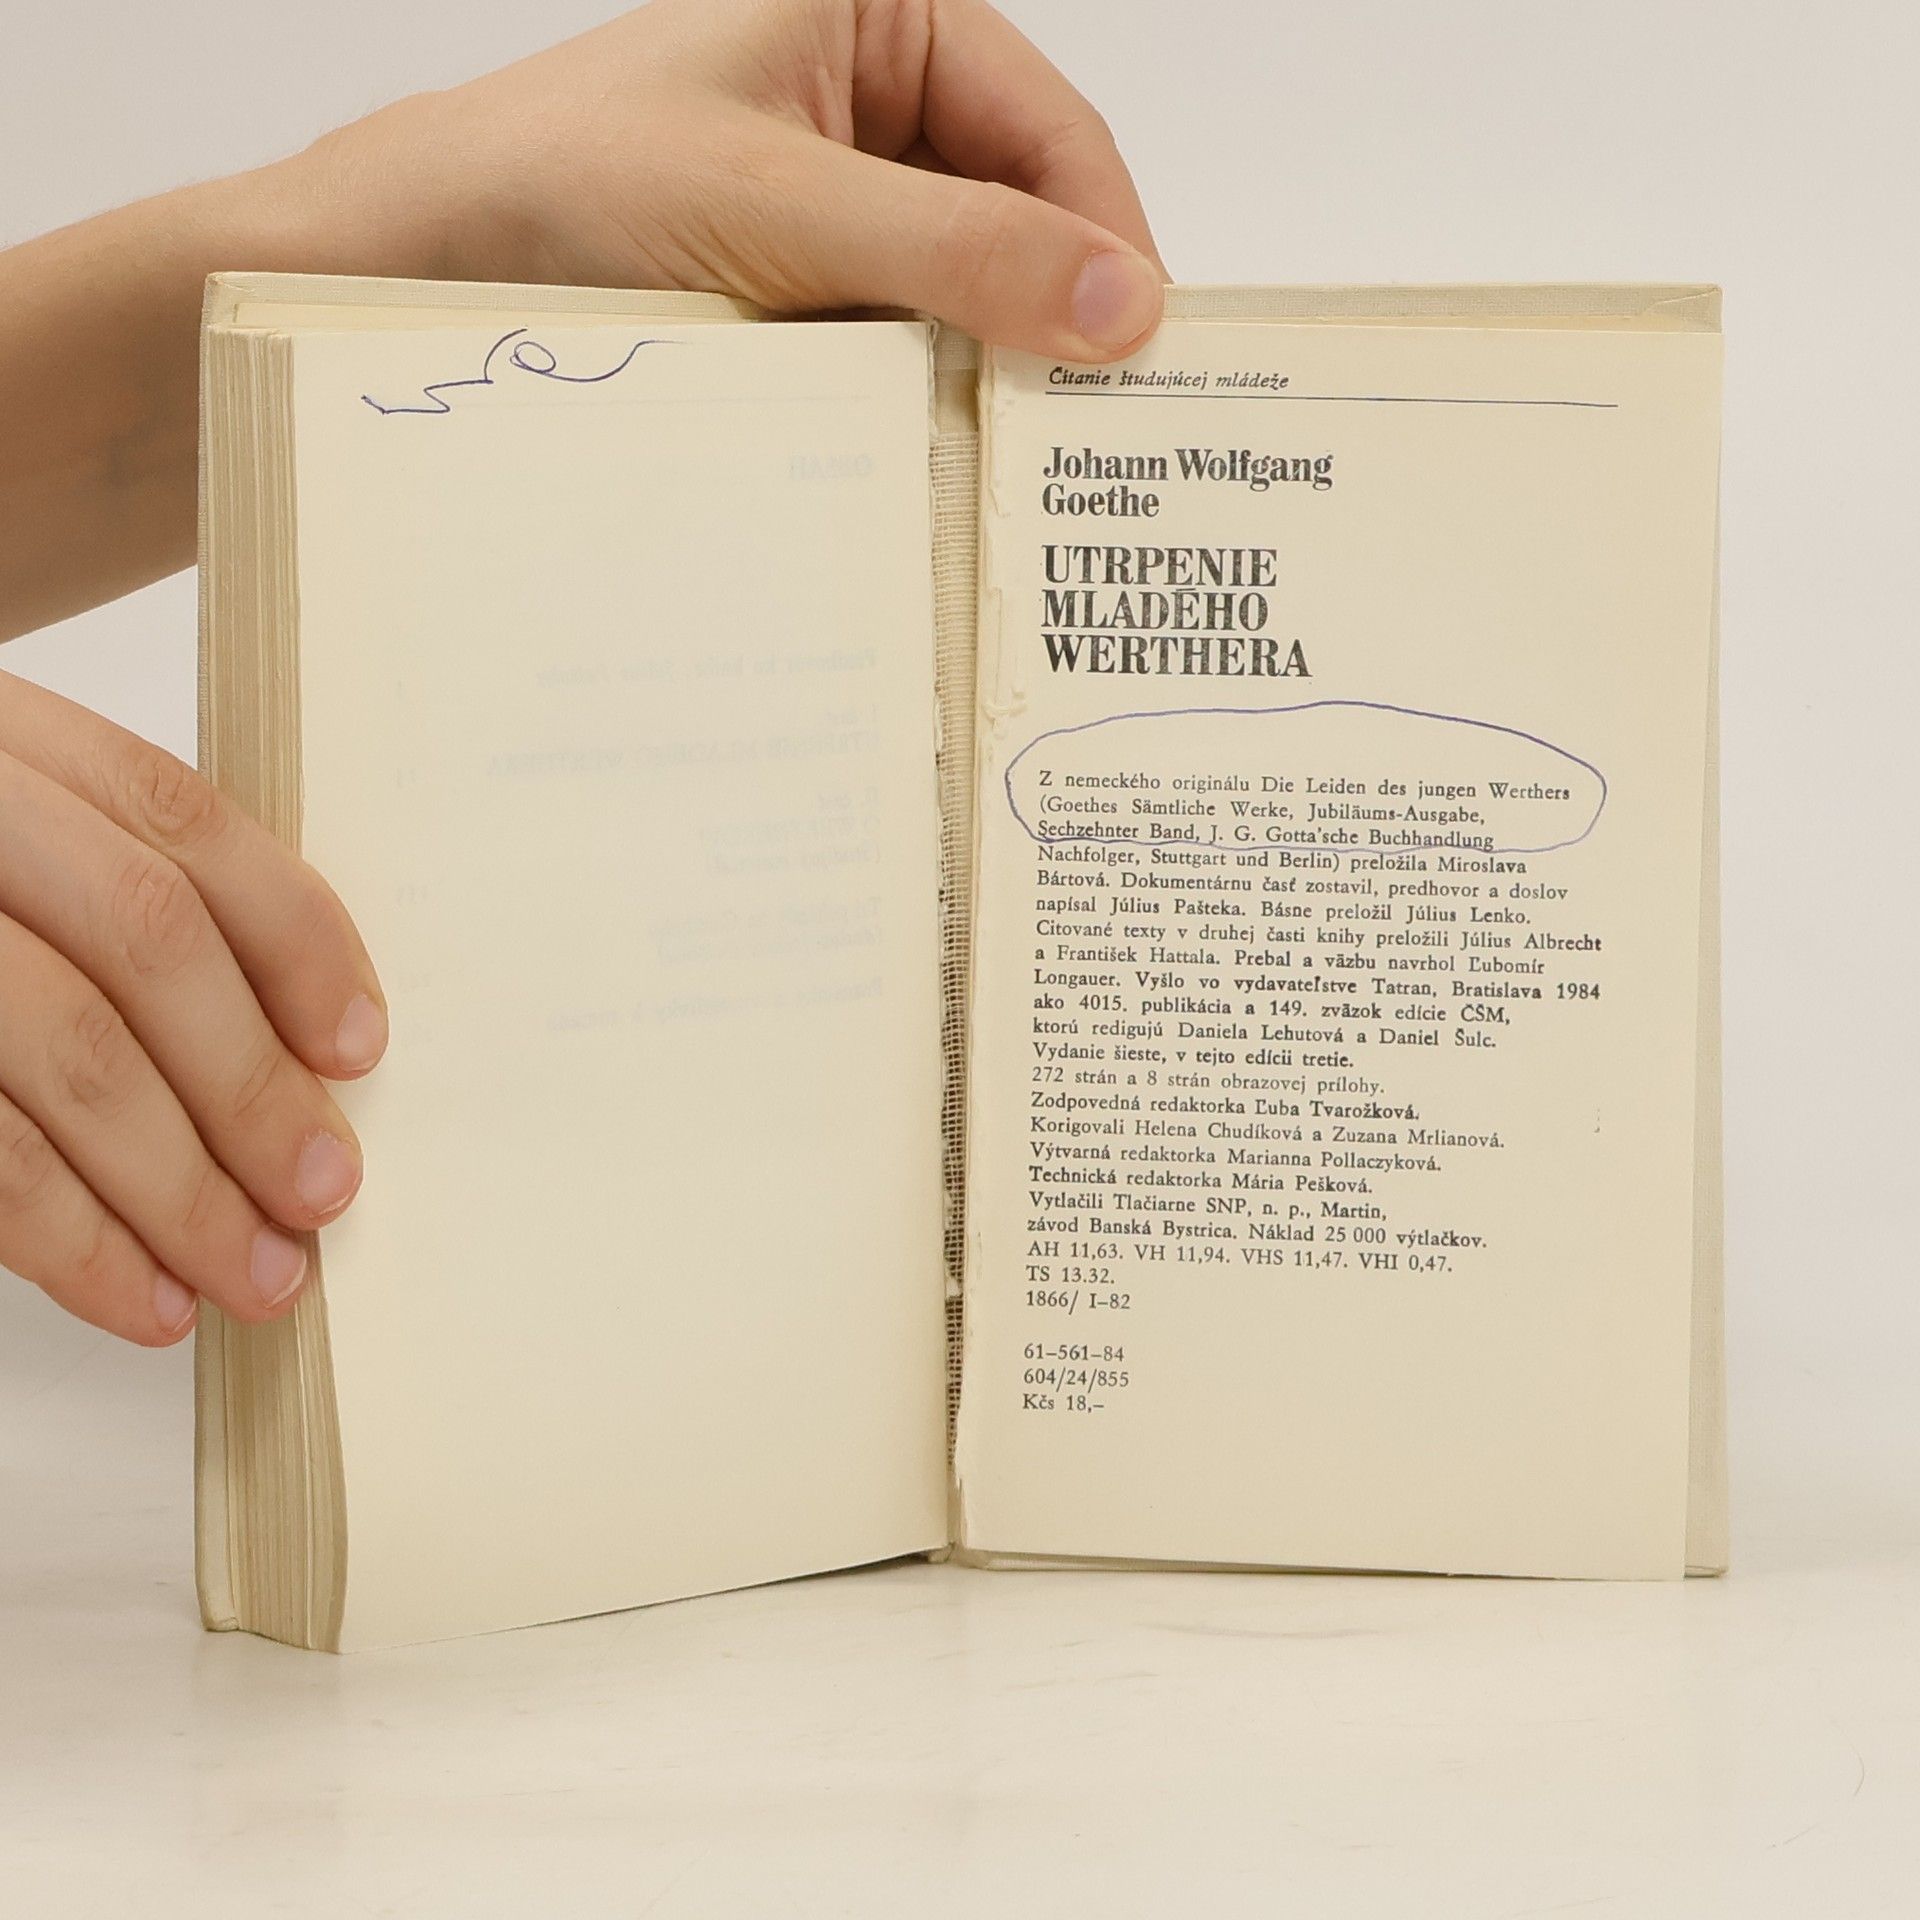 Čítanie študujúcej mládeže
Johann Wolfgang
Goethe
UTRPENIE
MLADÉHO
WERTHERA
Z nemeckého originálu Die Leiden des jungen Werthers
(Goethes Sämtliche Werke, Jubiläums-Ausgabe,
Sechzehnter Band, J. G. Gotta'sche Buchhandlung
Nachfolger, Stuttgart und Berlin) preložila Miroslava
Bártová. Dokumentárnu časť zostavil, predhovor a doslov
napísal Július Pašteka. Básne preložil Július Lenko.
Citované texty v druhej časti knihy preložili Július Albrecht
a František Hattala. Prebal a väzbu navrhol Ľubomír
Longauer. Vyšlo vo vydavateľstve Tatran, Bratislava 1984
ako 4015. publikácia a 149. zväzok edície ČŠM,
ktorú redigujú Daniela Lehutová a Daniel Šulc.
Vydanie šieste, v tejto edícii tretie.
272 strán a 8 strán obrazovej prílohy.
Zodpovedná redaktorka Ľuba Tvarožková.
Korigovali Helena Chudíková a Zuzana Mrlianová.
Výtvarná redaktorka Marianna Pollaczyková.
Technická redaktorka Mária Pešková.
Vytlačili Tlačiarne SNP, n. p., Martin,
závod Banská Bystrica. Náklad 25 000 výtlačkov.
AH 11,63. VH 11,94. VHS 11,47. VHI 0,47.
TS 13.32.
1866/ I–82
61–561–84
604/24/855
Kčs 18,–